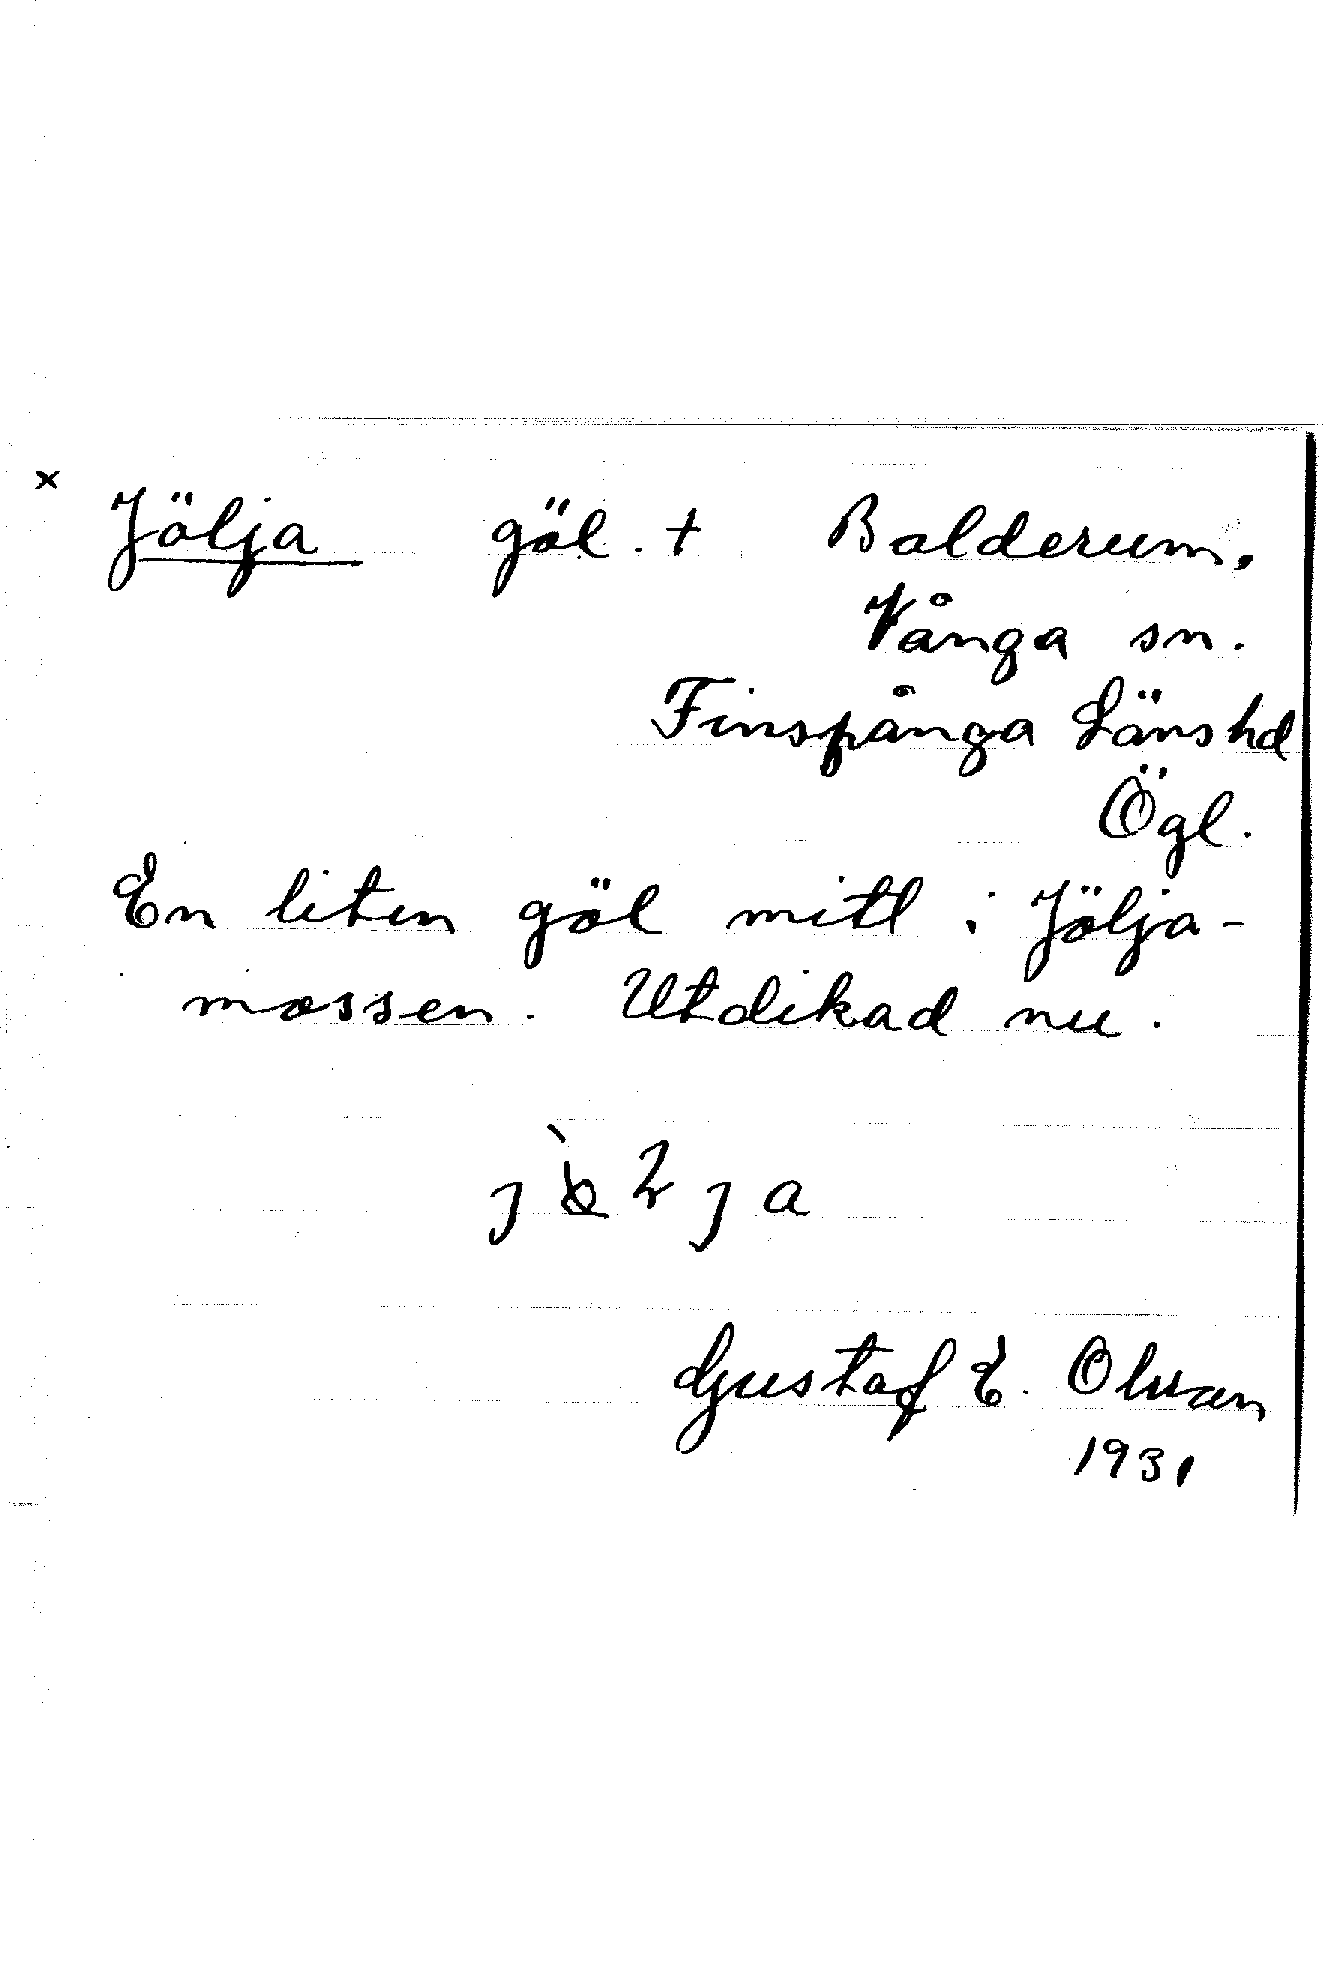 x Jölja göl. + Balderum.
Vånga sn.
Finspånga Länshd
Ögl.
En liten göl mitt i Jölja-
mossen. Utdikad nu.
Gustaf E. Olsson
1931